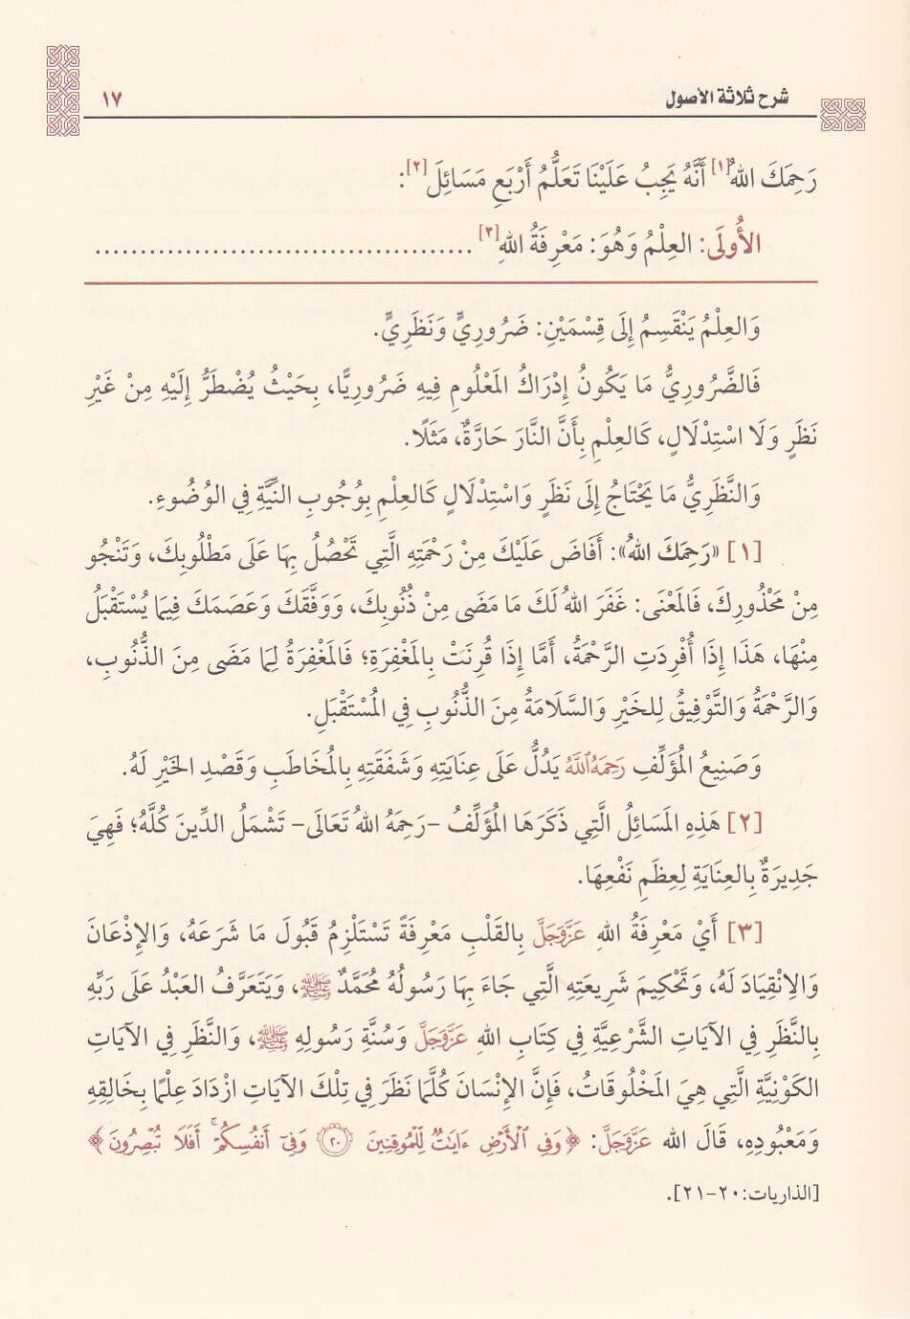 شرح ثلاثة الأصول
١٧
رَحِمَكَ اللهُ[١] أَنَّهُ يَجِبُ عَلَيْنَا تَعَلُّمُ أَرْبَعِ مَسَائِلَ[٢]:
الأُولَى: العِلْمُ وَهُوَ: مَعْرِفَةُ اللهِ[٣] ........................................
وَالعِلْمُ يَنْقَسِمُ إِلَى قِسْمَيْنِ: ضَرُورِيٍّ وَنَظَرِيٍّ.
فَالضَّرُورِيُّ مَا يَكُونُ إِدْرَاكُ المَعْلُومِ فِيهِ ضَرُورِيًّا، بِحَيْثُ يُضْطَرُّ إِلَيْهِ مِنْ غَيْرِ
نَظَرٍ وَلَا اسْتِدْلَالٍ، كَالعِلْمِ بِأَنَّ النَّارَ حَارَّةٌ، مَثَلًا.
وَالنَّظَرِيُّ مَا يَحْتَاجُ إِلَى نَظَرٍ وَاسْتِدْلَالٍ كَالعِلْمِ بِوُجُوبِ النِّيَّةِ فِي الوُضُوءِ.
[١] «رَحِمَكَ اللهُ»: أَفَاضَ عَلَيْكَ مِنْ رَحْمَتِهِ الَّتِي تَحْصُلُ بِهَا عَلَى مَطْلُوبِكَ، وَتَنْجُو
مِنْ مَحْذُورِكَ، فَالمَعْنَى: غَفَرَ اللهُ لَكَ مَا مَضَى مِنْ ذُنُوبِكَ، وَوَفَّقَكَ وَعَصَمَكَ فِيمَا يُسْتَقْبَلُ
مِنْهَا، هَذَا إِذَا أُفْرِدَتِ الرَّحْمَةُ، أَمَّا إِذَا قُرِنَتْ بِالمَغْفِرَةِ؛ فَالمَغْفِرَةُ لِمَا مَضَى مِنَ الذُّنُوبِ،
وَالرَّحْمَةُ وَالتَّوْفِيقُ لِلخَيْرِ وَالسَّلَامَةُ مِنَ الذُّنُوبِ فِي المُسْتَقْبَلِ.
وَصَنِيعُ المُؤَلِّفِ رَحِمَهُ ٱللَّهُ يَدُلُّ عَلَى عِنَايَتِهِ وَشَفَقَتِهِ بِالمُخَاطَبِ وَقَصْدِ الخَيْرِ لَهُ.
[٢] هَذِهِ المَسَائِلُ الَّتِي ذَكَرَهَا المُؤَلِّفُ -رَحِمَهُ اللهُ تَعَالَى- تَشْمَلُ الدِّينَ كُلَّهُ؛ فَهِيَ
جَدِيرَةٌ بِالعِنَايَةِ لِعِظَمِ نَفْعِهَا.
[٣] أَيْ مَعْرِفَةُ اللهِ عَزَّوَجَلَّ بِالقَلْبِ مَعْرِفَةً تَسْتَلْزِمُ قَبُولَ مَا شَرَعَهُ، وَالإِذْعَانَ
وَالِانْقِيَادَ لَهُ، وَتَحْكِيمَ شَرِيعَتِهِ الَّتِي جَاءَ بِهَا رَسُولُهُ مُحَمَّدٌ ﷺ، وَيَتَعَرَّفُ العَبْدُ عَلَى رَبِّهِ
بِالنَّظَرِ فِي الآيَاتِ الشَّرْعِيَّةِ فِي كِتَابِ اللهِ عَزَّوَجَلَّ وَسُنَّةِ رَسُولِهِ ﷺ، وَالنَّظَرِ فِي الآيَاتِ
الكَوْنِيَّةِ الَّتِي هِيَ المَخْلُوقَاتُ، فَإِنَّ الإِنْسَانَ كُلَّمَا نَظَرَ فِي تِلْكَ الآيَاتِ ازْدَادَ عِلْمًا بِخَالِقِهِ
وَمَعْبُودِهِ، قَالَ الله عَزَّوَجَلَّ: ﴿وَفِي ٱلْأَرْضِ ءَايَٰتٌ لِّلْمُوقِنِينَ ۝٢٠ وَفِىٓ أَنفُسِكُمْ ۚ أَفَلَا تُبْصِرُونَ﴾
[الذاريات:٢٠-٢١].